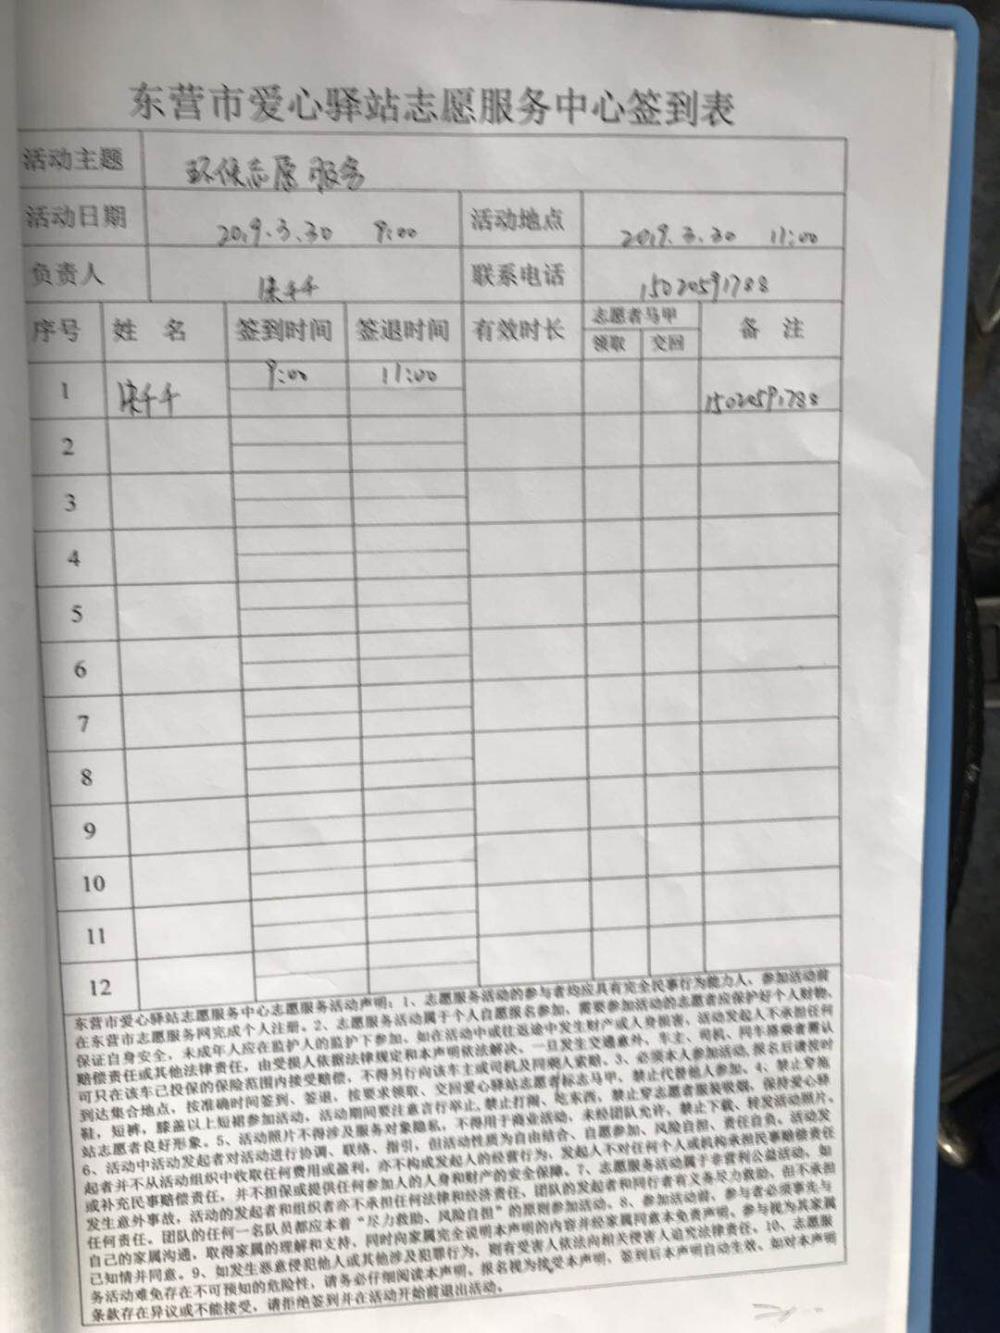 东营市爱心驿站志愿服务中心签到表
活动主题 环保志愿服务
活动日期 2019.3.30 9:00 活动地点 2019.3.30 11:00
负责人 千千 联系电话 15020591788
序号 姓 名 签到时间 签退时间 有效时长 志愿者马甲 备 注
领取 交回
1 千千 9:00 11:00 15020591788
2
3
4
5
6
7
8
9
10
11
12
东营市爱心驿站志愿服务中心志愿服务活动声明：1、志愿服务活动的参与者均应具有完全民事行为能力人，参加活动前
在东营市志愿服务网完成个人注册。2、志愿服务活动属于个人自愿报名参加，需要参加活动的志愿者应保护好个人财物，
保证自身安全，未成年人应在监护人的监护下参加。如在活动中或往返途中发生财产或人身损害，活动发起人不承担任何
赔偿责任或其他法律责任，由受损人依据法律规定和本声明依法解决。一旦发生交通意外，车主、司机、同车搭乘者需认
可只在该车已投保的保险范围内接受赔偿，不得另行向该车主或司机及同乘人索赔。3、必须本人参加活动，报名后请按时
到达集合地点，按准确时间签到、签退，按要求领取、交回爱心驿站志愿者标志马甲，禁止代替他人参加。4、禁止穿拖
鞋，短裤，膝盖以上短裙参加活动，活动期间要注意言行举止，禁止打闹、吃东西，禁止穿志愿者服装吸烟，保持爱心驿
站志愿者良好形象。5、活动照片不得涉及服务对象隐私，不得用于商业活动，未经团队允许，禁止下载、转发活动照片。
6、活动中活动发起者对活动进行协调、联络、指引，但活动性质为自由结合、自愿参加、风险自担、责任自负。活动发
起者并不从活动组织中收取任何费用或盈利，亦不构成发起人的经营行为，发起人不对任何个人或机构承担民事赔偿责任
或补充民事赔偿责任，并不担保或提供任何参加人的人身和财产的安全保障。7、志愿服务活动属于非营利公益活动，如
发生意外事故，活动的发起者和组织者亦不承担任何法律和经济责任，团队的发起者和同行者有义务尽力救助，但不承担
任何责任。团队的任何一名队员都应本着“尽力救助、风险自担”的原则参加活动。8、参加活动前，参与者必须事先与
自己的家属沟通，取得家属的理解和支持，同时向家属完全说明本声明的内容并经家属同意本免责声明，参与视为其家属
已知情并同意。9、如发生恶意侵犯他人或其他涉及犯罪行为，则有受害人依法向相关侵害人追究法律责任。10、志愿服
务活动难免存在不可预知的危险性，请务必仔细阅读本声明，报名视为接受本声明，签到后本声明自动生效，如对本声明
条款存在异议或不能接受，请拒绝签到并在活动开始前退出活动。